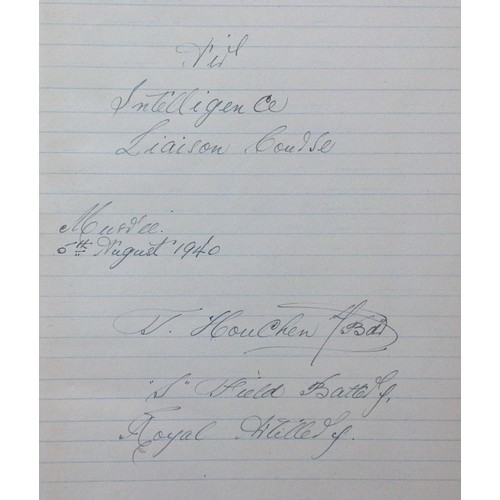 Air
Intelligence
Liaison Course
Murree.
5th August 1940
Houchen Bdr
"S" Field Battery,
Royal Artillery.